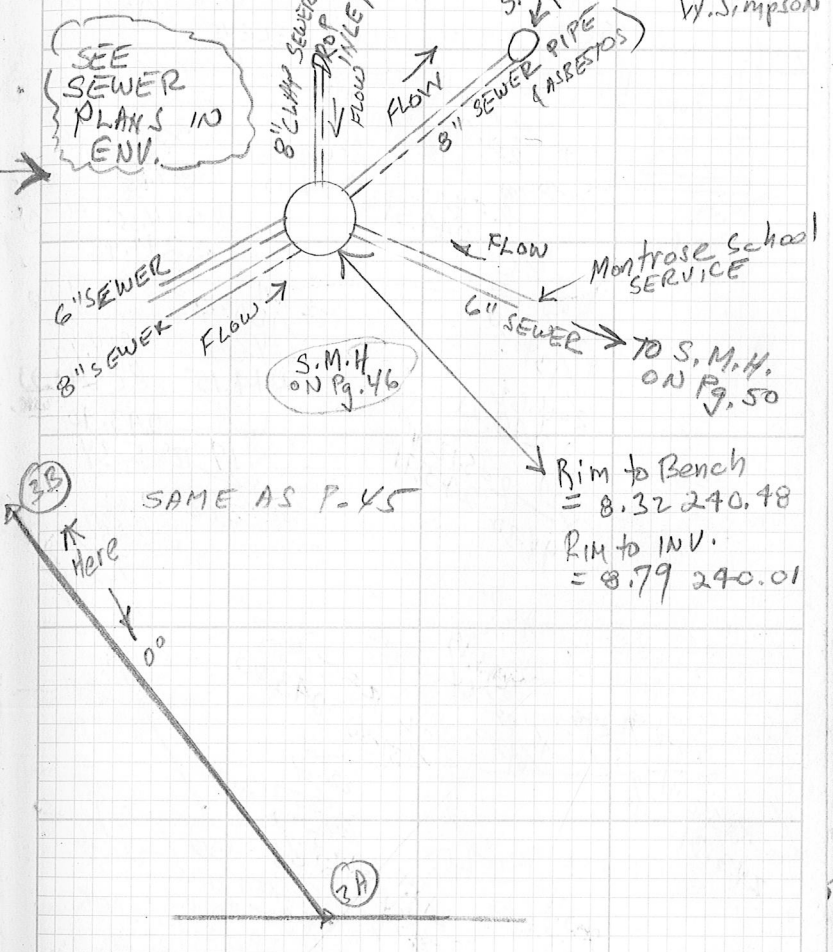 W. Simpson
SEE
SEWER
PLANS IN
ENV.
8" CLAY SEWER
DROP
INLET
FLOW
FLOW
8" SEWER PIPE
(ASBESTOS)
FLOW
Montrose School
SERVICE
6" SEWER
TO S.M.H.
ON Pg. 50
6" SEWER
8" SEWER
FLOW
S.M.H
ON Pg. 46
Rim to Bench
= 8.32 240.48
RIM to INV.
= 8.79 240.01
3B
SAME AS P-45
Here
0°
3A